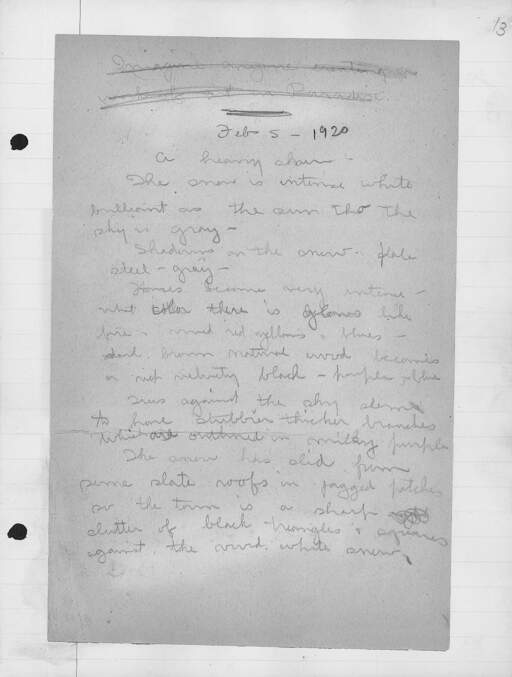 13
Imagine anyone
in Paradise
Feb 5 - 1920
A heavy
The snow is intense white
brilliant as the sun tho the
sky is gray -
Shadows on the snow. slate
steel - gray -
Houses become very intense -
what color there is glows like
fire - vivid red yellows & blues -
dark brown natural wood becomes
a rich velvety black - purples & blue
Trees against the sky seem
to have stubbier thicker branches
which are outlined in milky purple
The snow has slid from
some slate roofs in jagged patches
so the town is a sharp
clutter of black triangles & squares
against the vivid white snow,